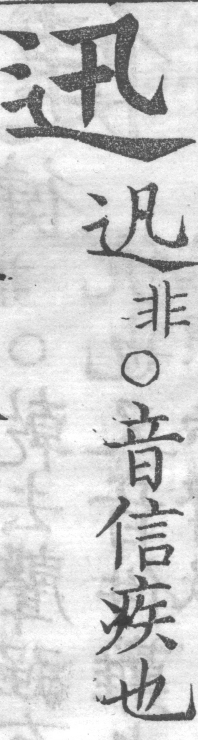 迅
非○音信疾也